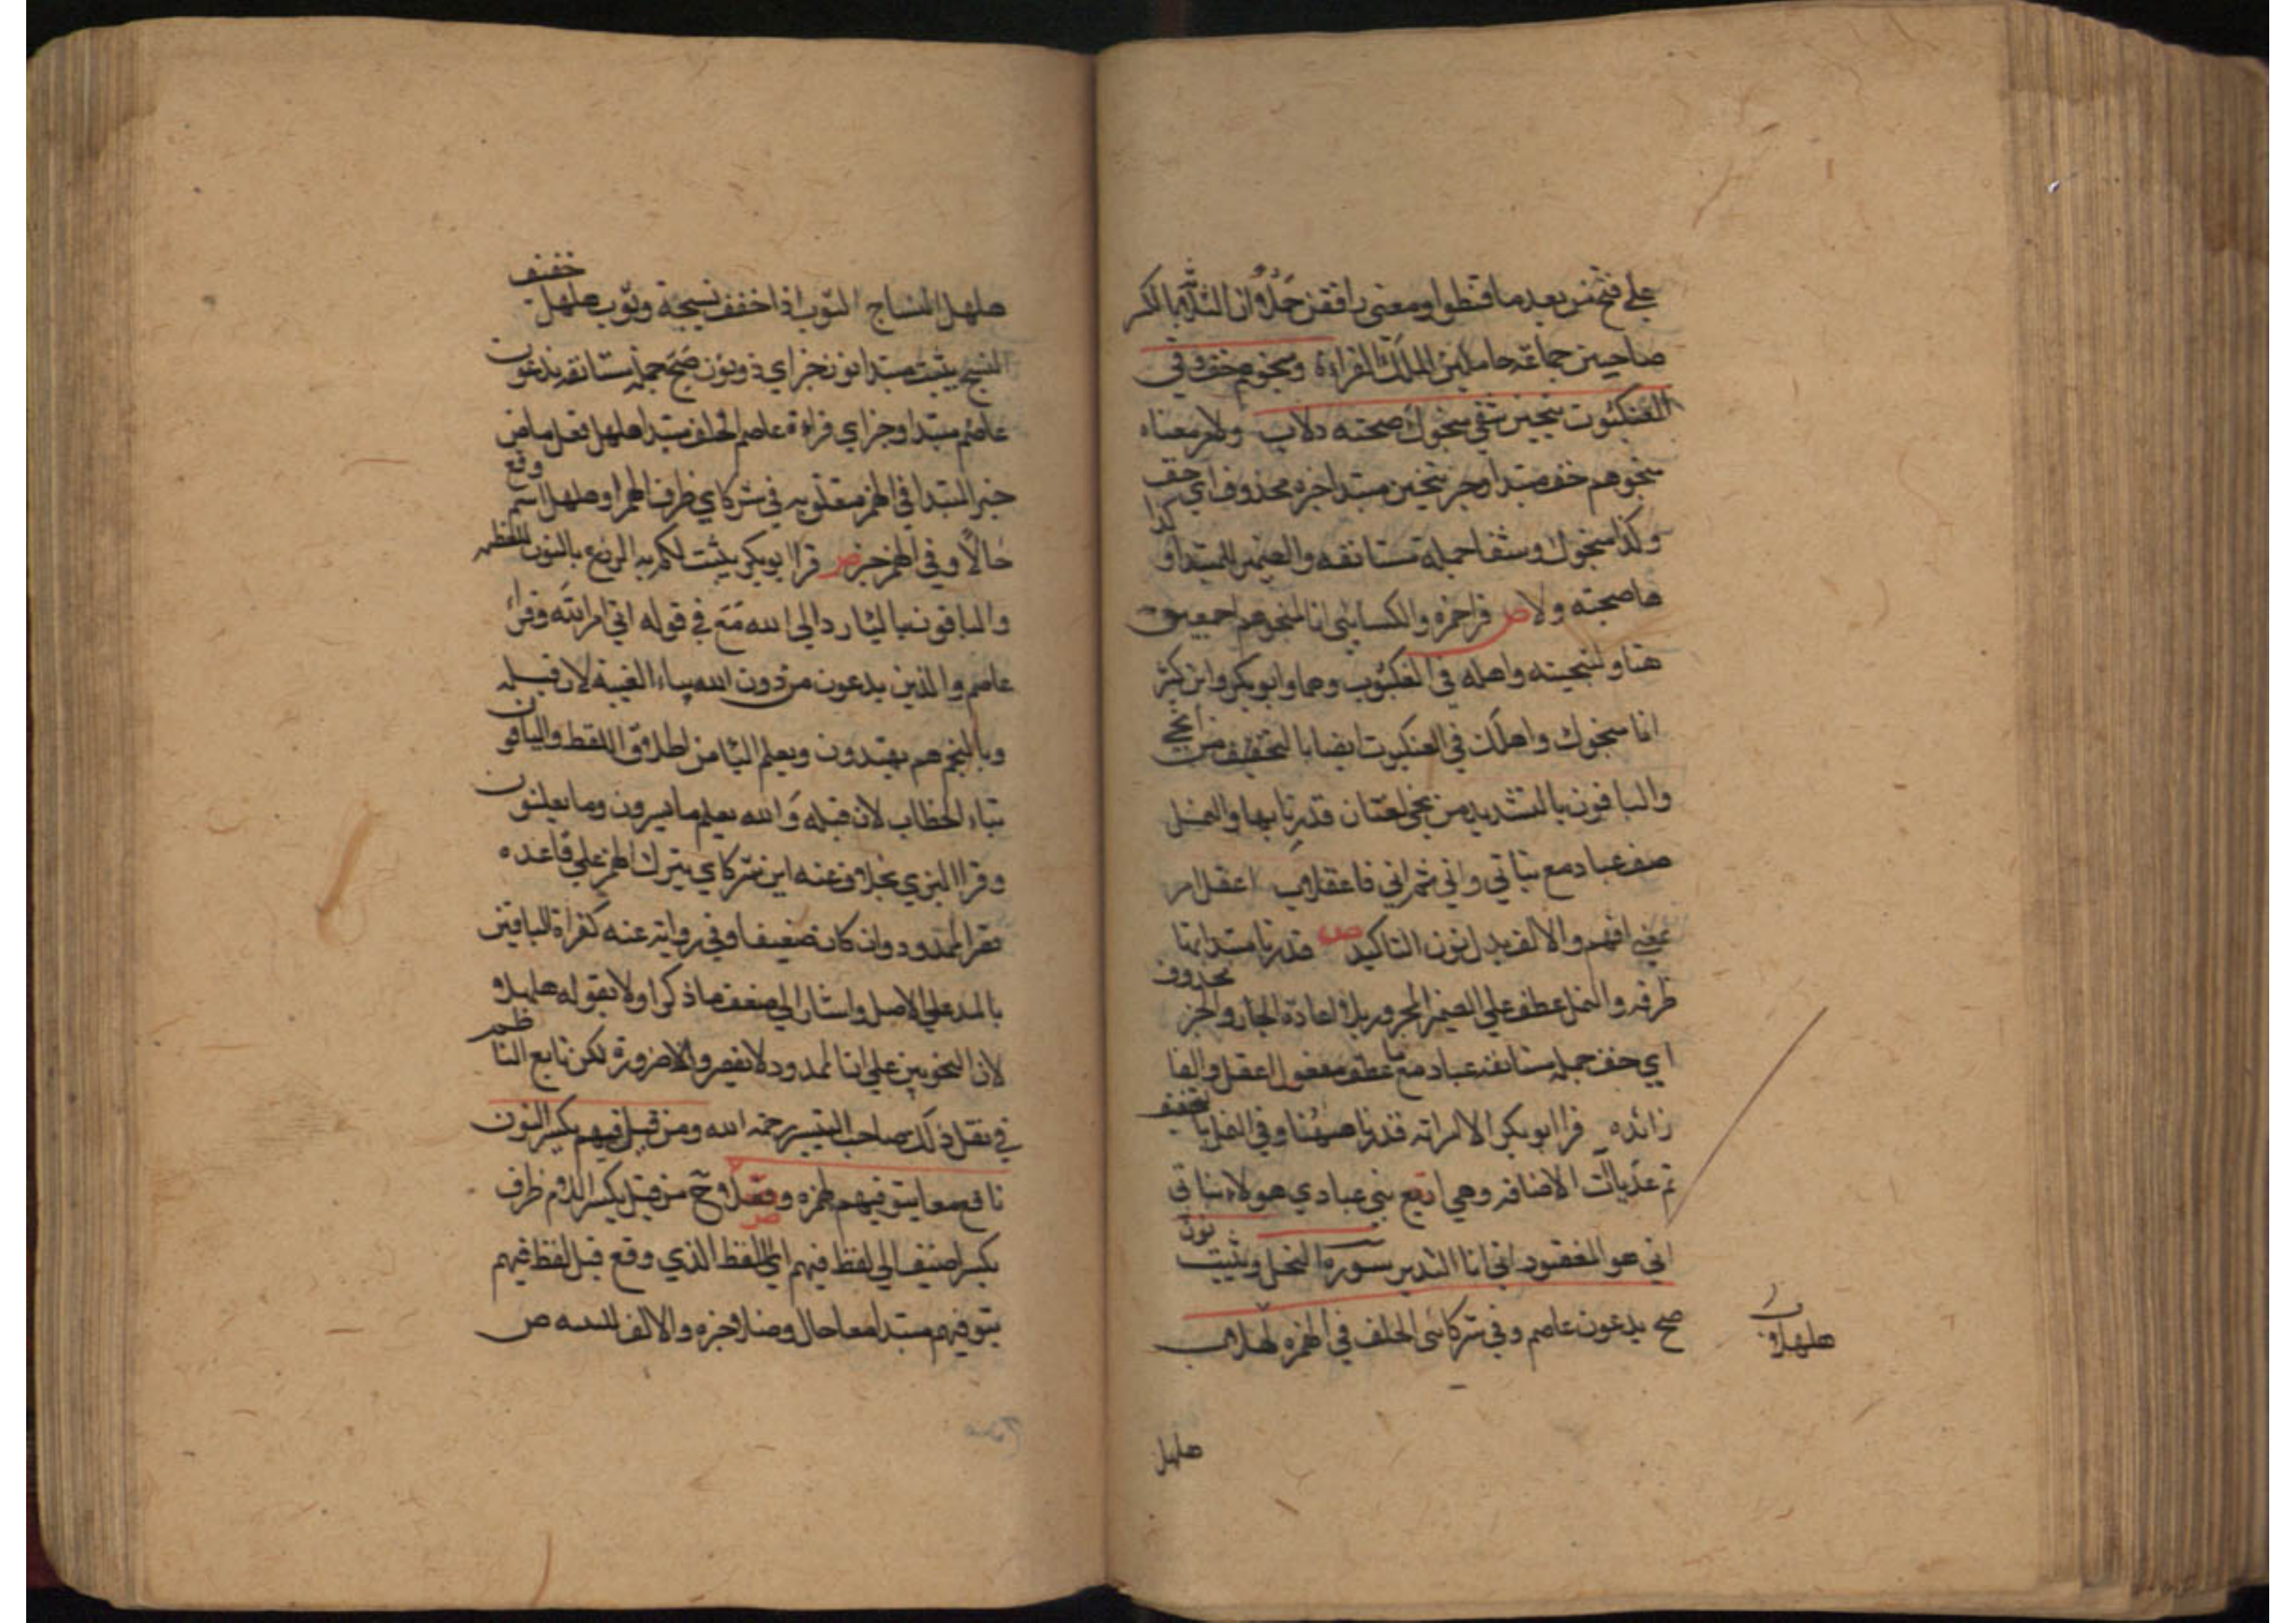 على فتح من بعد ما قنطوا ومعنى رافقن حملا ان
صاحبين جماعة حاملين لتلك القراءة ومنجوهم خف وفي
العنكبوت ننجين شفى منجوك صحبته دلا ولا معناه
منجوهم خف مبتدا وخبر ننجين مبتدا خبره محذوف اي خف
وكذا منجوك وشفا جملة مستانفة والضمير للمبتدا و كذا
ها صحبته ولا ص قرا حمزة والكسائي انا لمنجوهم اجمعين
هنا ولننجينه واهله في العنكبوت وهما وابو بكر وابن كثير
انا منجوك واهلك في العنكبوت ايضا بالتخفيف من انجى
والباقون بالتشديد من نجى لغتان قدرنا بها والنمل
صف عباد مع بناتي واني ثم اني فاعقلا اعقل امر
بمعنى افهم والالف بدل نون التاكيد ص قدرنا مبتدا بها
ظرفه والنمل عطف على الضمير المجرور بلا اعادة الجار والخبر محذوف
اي خفف جملة مستانفة عباد مع ما عطف مفعول اعقل والفا
زائدة قرا ابو بكر الا امراته قدرنا ههنا وفي النمل بالتخفيف
ثم عد يات الاضافة وهي اربع نبئ عبادي هؤلاء بناتي
اني هو الغفور اني انا النذير سورة النحل وينبت نون
صح يدعون عاصم وفي شركائي الخلف في الهمز هلهلا
هلهلا
هلهل
هلهل النساج الثوب اذا خفف نسجه وثوب هلهل خفيف
النسج ينبت مبتدا نون خبر اي ذو نون صح جملة مستانفة يدعون
عاصم مبتدا وخبر اي قراءة عاصم الخلف مبتدا هلهل فعل ماض
خبر المبتدا في الهمز متعلق به في شركاي ظرف الهمز او هلهل اسم وقع
حالا وفي الهمز خبر ص قرا ابو بكر ينبت لكم به الزرع بالنون للعظمة
والباقون باليا ردا الى الله مع في قوله اتى امر الله وقرا
عاصم والذين يدعون من دون الله بياء الغيبة لان قبله
وبالنجم هم يهتدون ويعلم اليا من اطلاق اللفظ والباقون
بتاء الخطاب لان قبله والله يعلم ما تسرون وما تعلنون
وقرا البزي بخلاف عنه اين شركاي بترك الهمز على قاعدة
قصر الممدود وان كان ضعيفا وفي رواية عنه كقراءة الباقين
بالمد على الاصل واشار الى ضعف ما ذكر اولا بقوله هلهلا
لان النحويين على ان الممدود لا يقصر الا ضرورة لكن تابع الناظم
في نقل ذلك صاحب التيسير رحمه الله ومن قبل فيهم بكسر النون
نافع معا يتوفيهم لحمزة وصلا وح من قبل بكسر اللام ظرف
بكسر اضيف الى لفظ فيهم اي اللفظ الذي وقع قبل لفظ فيهم
يتوفيهم مبتدا معا حال وصلا خبره والالف ص